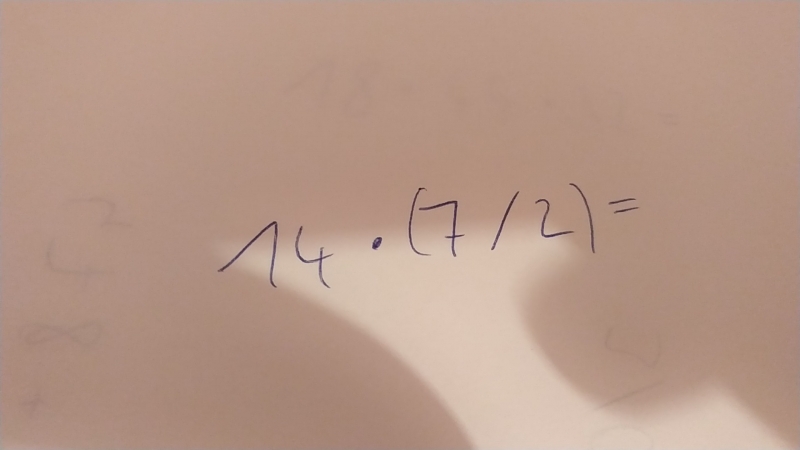 14 · (7/2) =